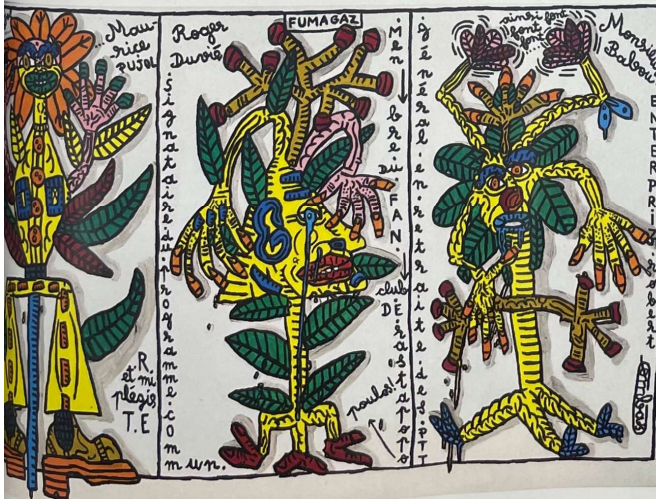 ...Mau-
rice
PUJOL
R.
et mi
plegis
T.E
Roger
Duvié
signataire du programme commun.
FUMAGAZ
Men
bre
DU
FAN
club
DE
rastapopo
poulos!
général en retraite des PTT
ainsi font
font
Monsieur
Babou
ENTERPRIZ robert
Combas